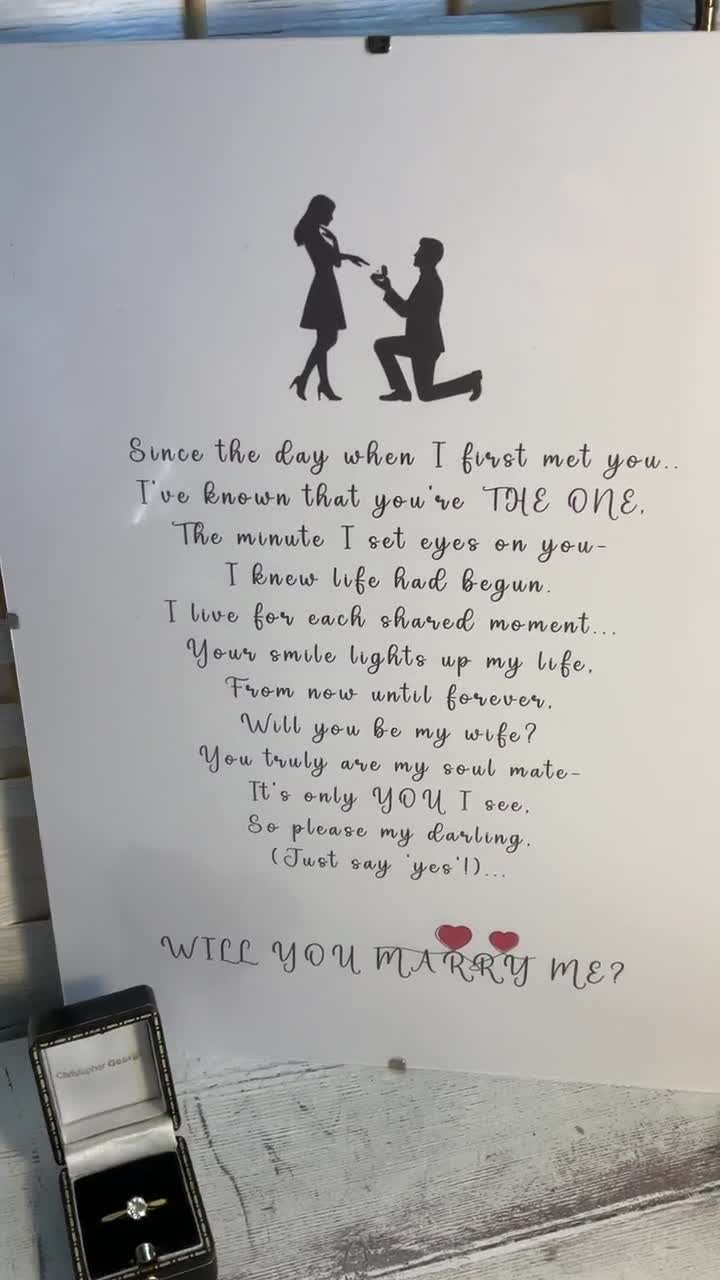 Since the day when I first met you..
I've known that you're THE ONE,
The minute I set eyes on you-
I knew life had begun.
I live for each shared moment...
Your smile lights up my life,
From now until forever,
Will you be my wife?
You truly are my soul mate-
It's only YOU I see,
So please my darling,
(Just say 'yes'!)...
WILL YOU MARRY ME?
Christopher